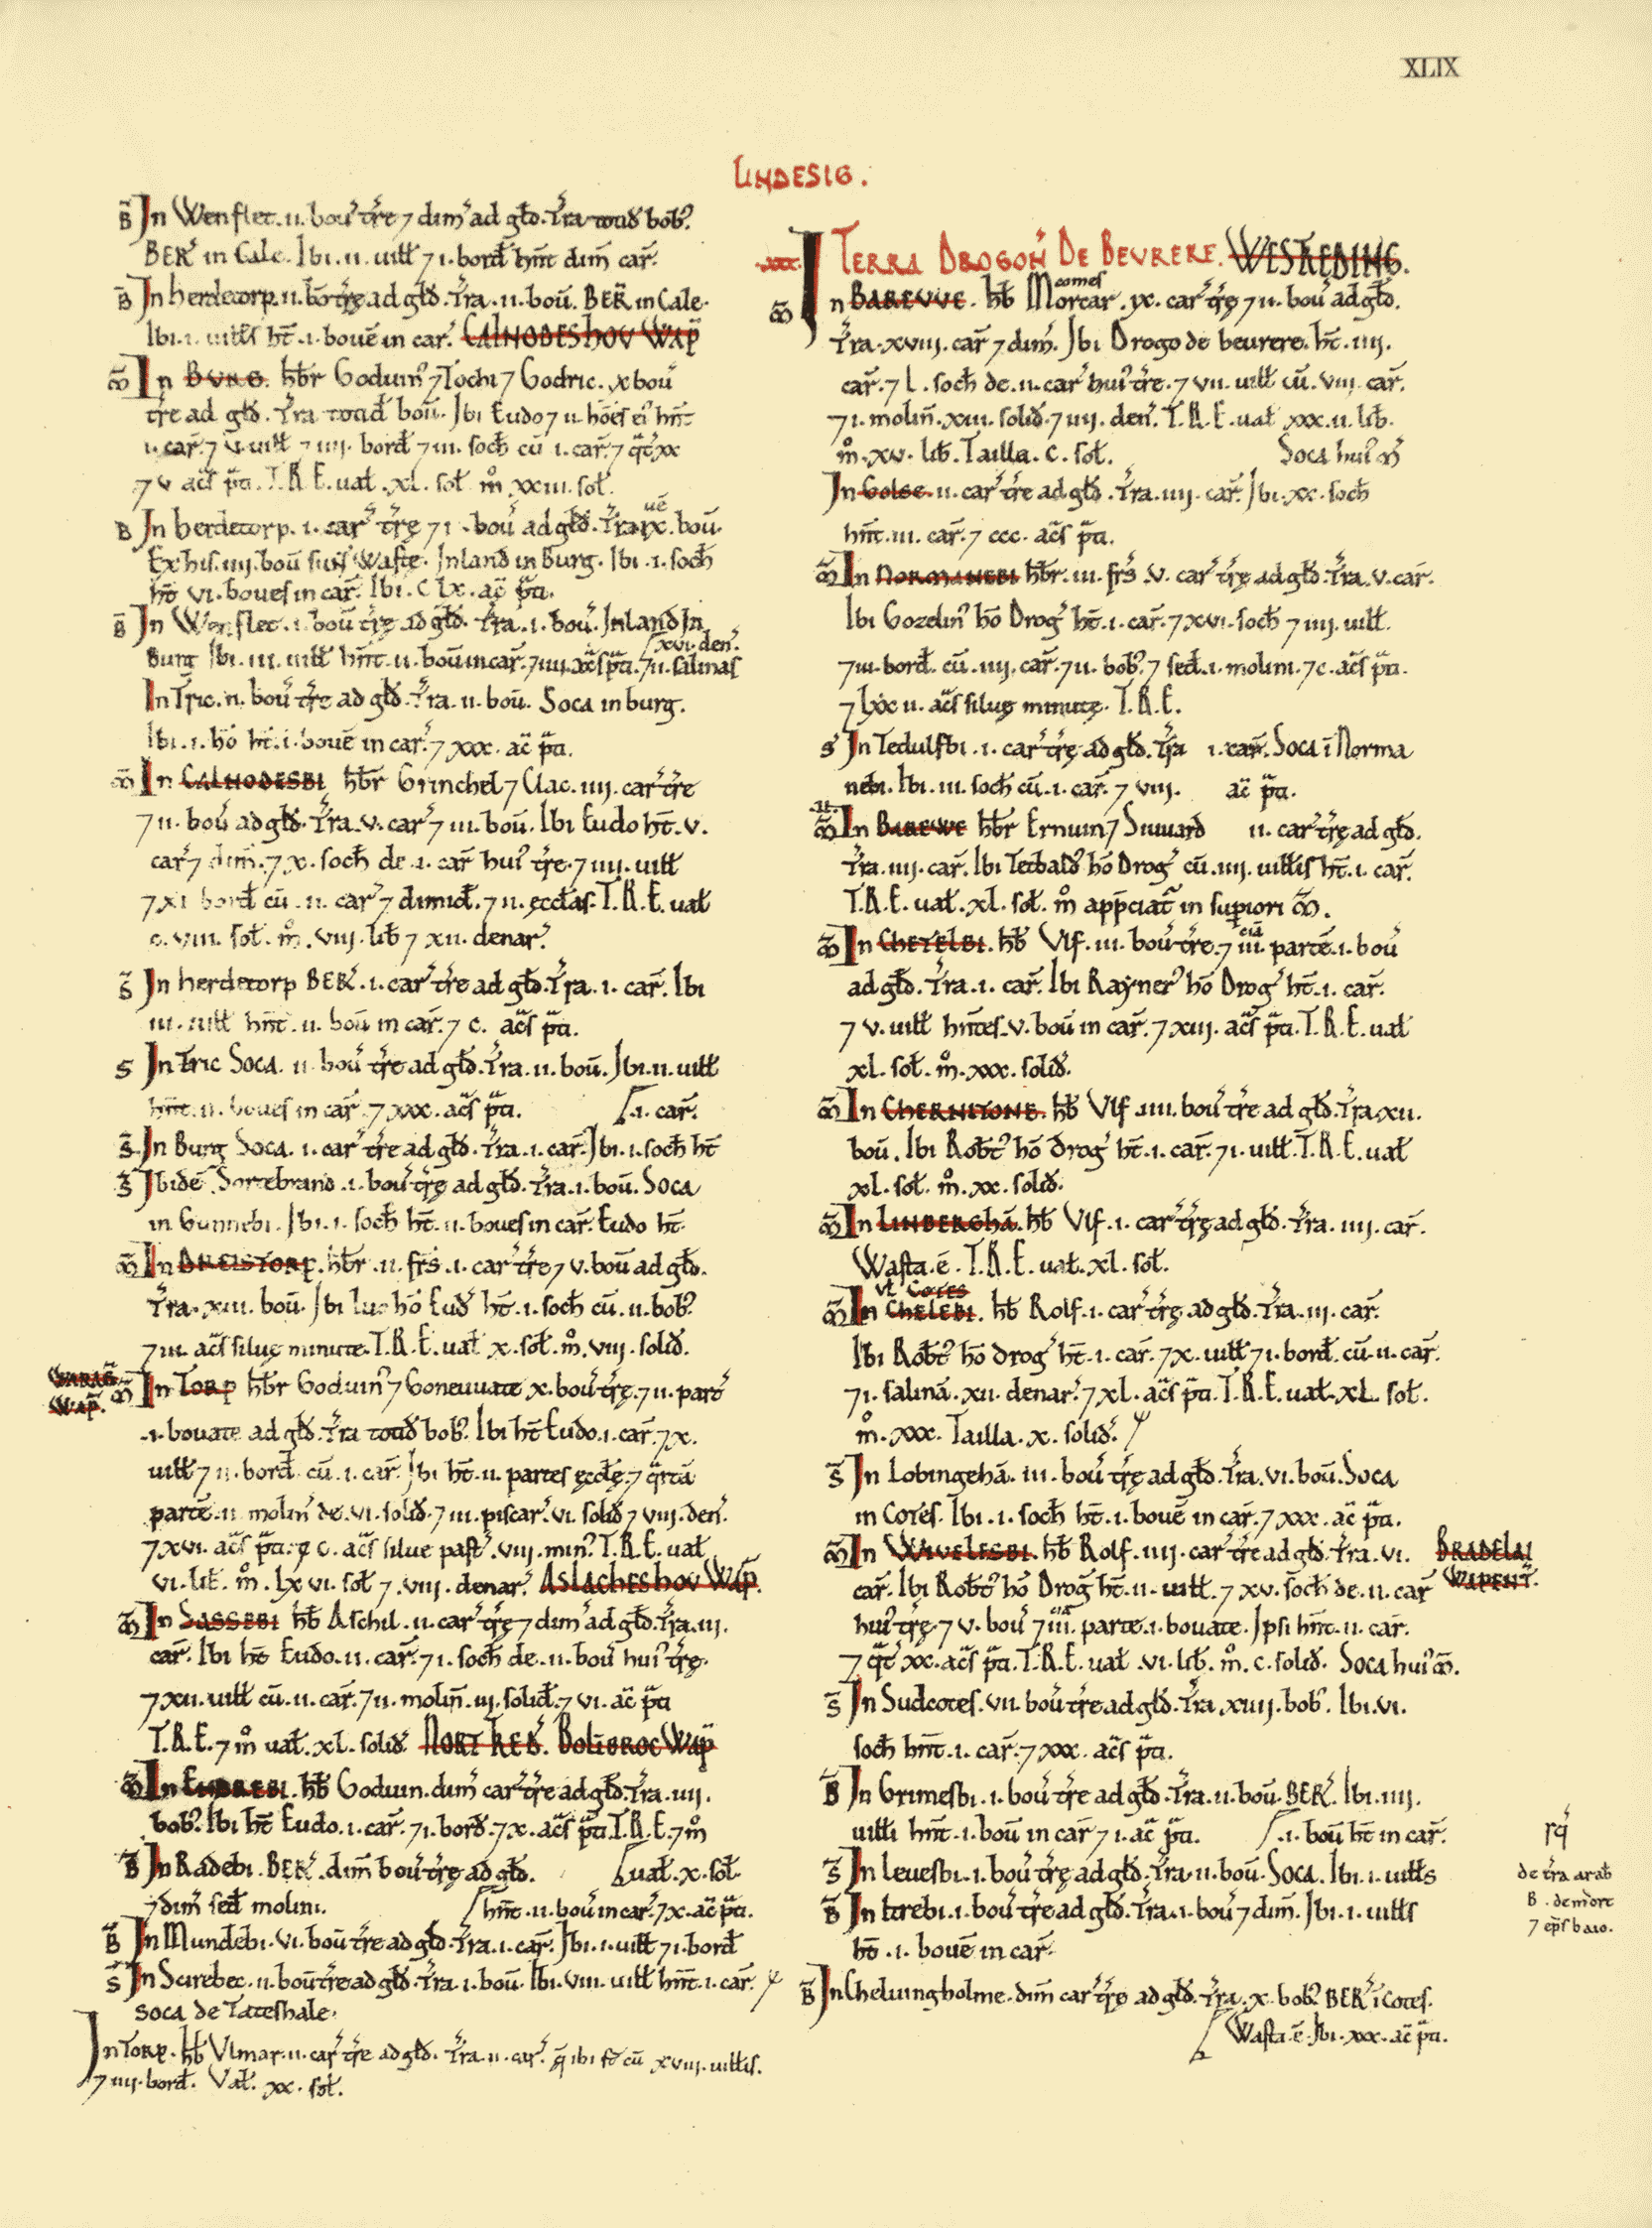 XLIX
LINDESIG.
B̃ In Wenflet .ii. bou' tr̃e ⁊ dim' ad głd. Tr̃a totiđ bob'.
BER' in Cale. Ibi .ii. uiłł ⁊ i. borđ hn̄t dim̄ car̃.
B̃ In herdetorp .ii. bo' tr̃e ad głd. Tr̃a .ii. boū. BER̃ in Cale.
Ibi .i. uiłłs ht̄ .i. bouē in car'. CALNODESHOV WAP̃
m̃ In BVRG. hb̃r Goduin' ⁊ Tochi ⁊ Godric. x bou'
tr̃e ad głd. Tr̃a totiđ boū. Ibi Eudo ⁊ ii hōes ei' hn̄t
ii car̃. ⁊ v. uiłł ⁊ iiii. borđ ⁊ iii. soch̃ cū .i. car̃. ⁊ qt̃ xx
⁊ v ac̃s p̃ti. T.R.E. uał .xl. soł. m̊ xxiii. soł.
B In herdetorp .i. car' tr̃ę ⁊ i. bou' ad głd. Tr̃a ix. boū.
Ex his .iiii. boū sunt Waste. Inland in Burg. Ibi .i. soch̃
ht̄ vi. boues in car̃. Ibi. C lx. ac̃ p̃ti.
B̃ In Wenflet .i. boū tr̃ę ad głd. Tr̃a .i. bou'. Inland In
⌠xvi. den'.
Burg Ibi .iii. uiłł hn̄t .ii. boū in car̃. ⁊ iiii. ac̃s p̃ti. ⁊ ii. salinas
In Tric. ii. bou' tr̃e ad głd. Tr̃a .ii. boū. Soca in burg.
Ibi .i. hō ht̄ .i. bouē in car̃. ⁊ xxx. ac̃ p̃ti.
m̃ In CALNODESBI hb̃r Grinchel ⁊ Clac. iiii. car' tr̃e
⁊ ii. bou' ad głd. Tr̃a .v. car' ⁊ iii. boū. Ibi Eudo ht̄ .v.
car' ⁊ dim̄. ⁊ x. soch̃ de .i. car̃ hui' tr̃e. ⁊ iiii. uiłł
⁊ xi borđ cū .ii. car' ⁊ dimiđ. ⁊ ii. ęccłas. T.R.E. uał
c. viii. soł. m̊. viii. lib̃ ⁊ xii. denar'.
s̃ In herdetorp BER'. i. car' tr̃e ad głd. Tr̃a .i. car̃. Ibi
iii. uiłł hn̄t .ii. boū in car̃. ⁊ c. ac̃s p̃ti.
S In Tric Soca. ii. bou' tr̃e ad głd. Tr̃a .ii. boū. Ibi .ii. uiłł
hn̄t .ii. boues in car̃. ⁊ xxx. ac̃s p̃ti. ⌠.i. car̃.
s̃ In Burg Soca. i. car' tr̃e ad głd. Tr̃a .i. car̃. Ibi .i. soch̃ ht̄
s̃ Ibidē Sortebrand .i. bou' tr̃ę ad głd. Tr̃a .i. boū. Soca
in Gunnebi. Ibi .i. soch̃ ht̄ .ii. boues in car̃. Eudo ht̄
m̃ In BREISTORP. hb̃r .ii. fr̃s .i. car' tr̃e ⁊ v. boū ad głd.
Tr̃a .xiii. boū. Ibi Iuo hō Euđ ht̄ .i. soch̃ cū .ii. bob'
⁊ iii. ac̃s siluę minute. T.R.E. uał x. soł. m̊. viii. soliđ.
WARAG̃ WAP̃.
m̃ In TORP hb̃r Goduin' ⁊ Goneuuate x. bou' tr̃ę. ⁊ ii. part'
.i. bouate ad głd. Tr̃a totiđ bob'. Ibi ht̄ Eudo .i. car̃. ⁊ x.
uiłł ⁊ ii. borđ cū .i. car̃. Ibi ht̄ .ii. partes ęccłę. ⁊ q̃rtā
partē .ii. molin' de .vi. soliđ. ⁊ iii. piscar'. vi. soliđ ⁊ viii. den'.
⁊ xvi. ac̃s p̃ti. ⁊ c. ac̃s silue past'. viii. min'. T.R.E. uał
vi. lib̃. m̊. lxvi. soł ⁊ .viii. denar'. ASLACHESHOU WAP̃.
m̃ In SASSEBI hb̃ Aschil. ii. car' tr̃ę ⁊ dim' ad głd. Tr̃a .iii.
car̃. Ibi ht̄ Eudo. ii. car̃. ⁊ i. soch̃ de .ii. bou' hui' tr̃ę.
⁊ xii. uiłł cū .ii. car̃. ⁊ ii. molin̄. iii. soliđ. ⁊ vi. ac̃ p̃ti
T.R.E. ⁊ m̊ uał. xl. soliđ. NORT REĐ. BOLIBROC WAP̃
m̃ In ENDREBI. hb̃ Goduin. dim' car' tr̃e ad głd. Tr̃a .iiii.
bob'. Ibi ht̄ Eudo .i. car̃. ⁊ i. borđ. ⁊ x. ac̃s p̃ti. T.R.E. ⁊ m̊
B̃ In Radebi. BER'. dim̄ bou' tr̃ę ad głd. ⌠uał. x. soł.
⁊ dim' seđ molini. ⌠hn̄t .ii. boū in car̃. ⁊ x. ac̃ p̃ti.
B̃ In Mundebi. vi. boū tr̃e ad głd. Tr̃a .i. car̃. Ibi .i. uiłł ⁊ i. borđ
s̃ In Scirebec. ii. boū tr̃e ad głd. Tr̃a .i. boū. Ibi. viii. uiłł hn̄t .i. car̃.
soca de Tateshale.
In Torp. hb̃ Vlmar. ii. car' tr̃e ad głd. Tr̃a .ii. car'. q̃ ibi st̃ cū xviii. uiłłis.
⁊ iiii. borđ. Vał. xx. soł.
.xxx. TERRA DROGON' DE BEVRERE. WESTREDING.
comes
m̃ In BAREVVE. hb̃ Morcar. ix. car' tr̃ę ⁊ ii. bou' ad głd.
Tr̃a .xviii. car̃ ⁊ dim'. Ibi Drogo de beurere. ht̄. iiii.
car̃. ⁊ l. soch̃ de .ii. car' hui' tr̃e. ⁊ vii. uiłł cū. viii. car̃.
⁊ i. molin̄. xiii. soliđ. ⁊ iiii. den'. T.R.E. uał xxx. ii. lib̃.
m̊. xv. lib̃. Tailla. c. soł. Soca hui' m̃
In Golse. ii. car' tr̃e ad głd. Tr̃a .iiii. car̃. Ibi .xx. soch̃
hn̄t .iii. car̃. ⁊ ccc. ac̃s p̃ti.
m̃ In NORMANEBI hb̃r. iii. fr̃s .v. car' tr̃ę ad głd. Tr̃a .v. car̃.
Ibi Gozelin' hō Drog' ht̄ .i. car̃. ⁊ xvi. soch̃ ⁊ iiii. uiłł.
⁊ iii. borđ. cū .iiii. car̃. ⁊ ii. bob'. ⁊ seđ .i. molini. ⁊ c. ac̃s p̃ti.
⁊ lxx ii. ac̃s siluę minutę. T.R.E.
S' In Tedulfbi .i. car' tr̃ę ad głd. Tr̃a i. car̃. Soca ī Norma
nebi. Ibi .iii. soch̃ cū .i. car̃. ⁊ viii. ac̃ p̃ti.
.ii.
m̃ In BAREWE hb̃r Ernuin ⁊ Siuuard ii. car' tr̃ę ad głd.
Tr̃a .iiii. car̃. Ibi Tetbald' hō Drog' cū .iiii. uiłłis ht̄ .i. car̃.
T.R.E. uał. xl. soł. m̊ app̃ciat̃ in sup̃iori m̃.
m̃ In CHETELBI. hb̃ Vlf. iii. bou' tr̃e. ⁊ iii. partē .i. bou'
ad głd. Tr̃a .i. car̃. Ibi Rayner' hō Drog' ht̄ .i. car̃.
⁊ v. uiłł hn̄tes .v. bou' in car̃. ⁊ xiii. ac̃s p̃ti. T.R.E. uał
xl. soł. m̊. xxx. soliđ.
m̃ In CHERNITONE. hb̃ Vlf .iiii. bou' tr̃e ad głd. Tr̃a xii.
boū. Ibi Rob̃t' hō drog' ht̄ .i. car̃. ⁊ i. uiłł. T.R.E. uał
xl. soł. m̊. xx. soliđ.
m̃ In LINBERGHĀ. hb̃ Vlf .i. car' tr̃ę ad głd. Tr̃a .iiii. car̃.
Wasta .ē. T.R.E. uał. xl. soł.
vł COTES
m̃ In CHELEBI. hb̃ Rolf .i. car' tr̃ę ad głd. Tr̃a .iii. car̃.
Ibi Rob̃t' hō drog' ht̄ .i. car̃. ⁊ x. uiłł ⁊ i. borđ. cū .ii. car̃.
⁊ i. salinā. xii. denar'. ⁊ xl. ac̃s p̃ti. T.R.E. uał. XL. soł.
m̊. xxx. Tailla. x. soliđ.
s̃ In Lobingehā. iii. bou' tr̃ę ad głd. Tr̃a .vi. boū. Soca
in Cotes. Ibi .i. soch̃ ht̄ .i. bouē in car̃. ⁊ xxx. ac̃ p̃ti.
m̃ In WIVELESBI. hb̃ Rolf .iiii. car' tr̃e ad głd. Tr̃a .vi. BRADELAI
car̃. Ibi Rob̃t' hō Drog̃ ht̄ .ii. uiłł. ⁊ xv. soch̃ de .ii. car̃ WAPENT̃.
hui' tr̃ę. ⁊ v. bou' ⁊ iii. parte .i. bouate. Ipsi hn̄t .ii. car̃.
⁊ qt̃ xx. ac̃s p̃ti. T.R.E. uał .vi. lib̃. m̊. c. soliđ. Soca hui' m̃.
s̃ In Sudcotes. vii. bou' tr̃e ad głd. Tr̃a xiiii. bob'. Ibi .vi.
soch̃ hn̄t .i. car̃. ⁊ xxx. ac̃s p̃ti.
B̃ In Grimesbi .i. bou' tr̃e ad głd. Tr̃a .ii. boū. BER'. Ibi .iiii.
uiłłi hn̄t .i. boū in car̃ ⁊ i. ac̃ p̃ti. ⌠.i. boū ht̄ in car̃.
s̃ In Leuesbi .i. bou' tr̃ę ad głd. Tr̃a .ii. boū. Soca. Ibi .i. uiłłs
B̃ In Itrebi .i. bou' tr̃e ad głd. Tr̃a .i. bou' ⁊ dim̄. Ibi .i. uiłłs
ht̄ .i. bouē in car̃.
B̃ In Cheluingholme. dim̄ car' tr̃ę ad głd. Tr̃a .x. bob'. BER' ī Cotes.
⌠Wasta .ē. Ibi .xxx. ac̃ p̃ti.
rq'
de tr̃a arab̃
B. de mort
⁊ ep̃s baio.